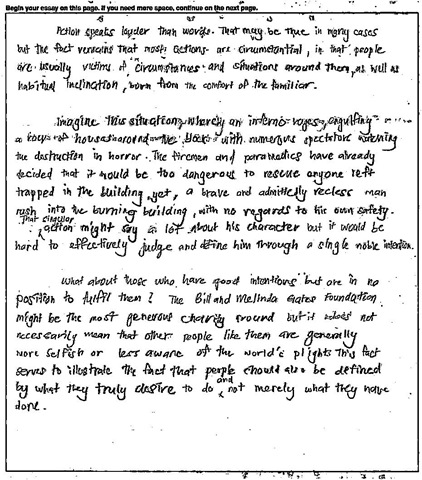 Begin your essay on this page. If you need more space, continue on the next page.
Action speaks louder than words. That may be true in many cases
but the fact remains that most actions are circumstantial, in that people
are usually victims of circumstances and situations around them, as well as
habitual inclination, born from the comfort of the familiar.
Imagine this situation, whereby an inferno rages, engulfing
a row of houses around the block with numerous spectators watching
the destruction in horror. The firemen and paramedics have already
decided that it would be too dangerous to rescue anyone left
trapped in the building, yet, a brave and admittedly recless man
rush into the burning building, with no regards to his own safety.
That singular
action might say a lot about his character but it would be
hard to effectively judge and define him through a single noble intention.
What about those who have good intentions but are in no
position to fulfil them? The Bill and Melinda Gates Foundation
might be the most generous charity around but it does not
necessarily mean that other people like them are generally
more selfish or less aware of the world's plights. This fact
serves to illustrate the fact that people should also be defined
by what they truly desire to do and not merely what they have
done.